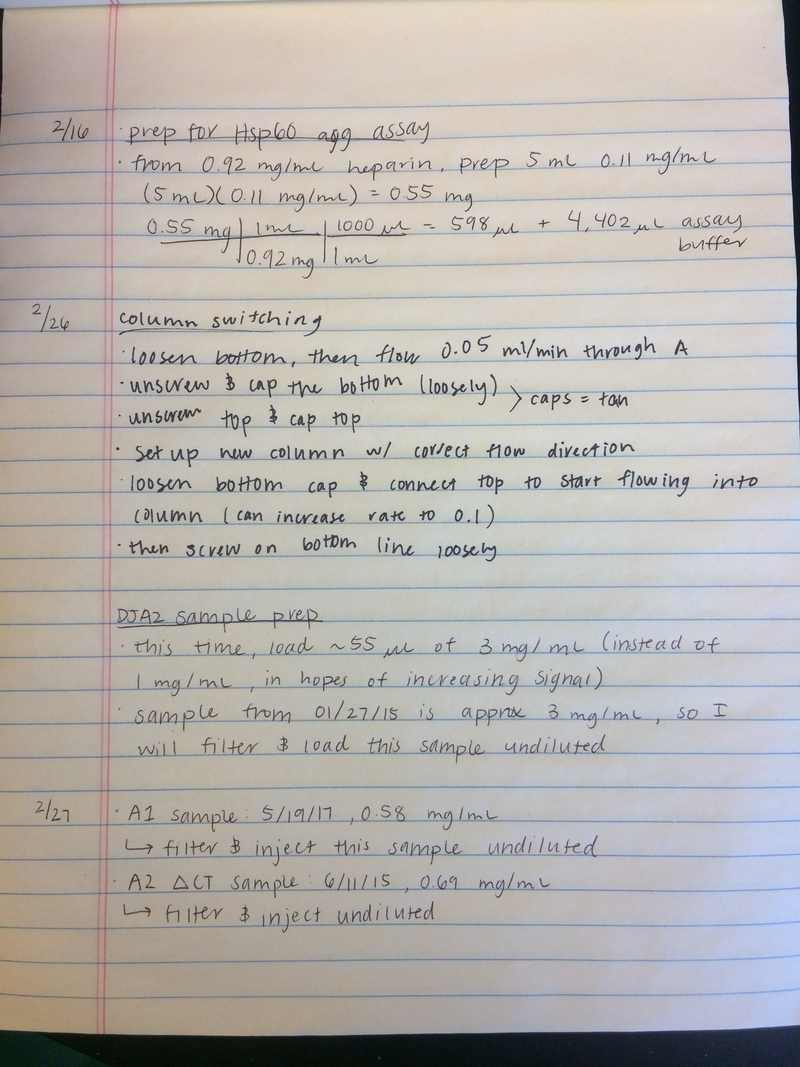 2/16 · prep for Hsp60 agg assay
· from 0.92 mg/mL heparin, prep 5 mL 0.11 mg/mL
(5 mL)(0.11 mg/mL) = 0.55 mg
0.55 mg | 1 mL | 1000 μL = 598 μL + 4,402 μL assay
buffer
| 0.92 mg | 1 mL
2/26 column switching
· loosen bottom, then flow 0.05 ml/min through A
· unscrew & cap the bottom (loosely) > caps = tan
· unscrew top & cap top
· set up new column w/ correct flow direction
· loosen bottom cap & connect top to start flowing into
column (can increase rate to 0.1)
· then screw on bottom line loosely
DJA2 sample prep
· this time, load ~55 μL of 3 mg/mL (instead of
1 mg/mL, in hopes of increasing signal)
· sample from 01/27/15 is approx 3 mg/mL, so I
will filter & load this sample undiluted
2/27 · A1 sample: 5/19/17, 0.58 mg/mL
↳ filter & inject this sample undiluted
· A2 ΔCT sample: 6/11/15, 0.69 mg/mL
↳ filter & inject undiluted